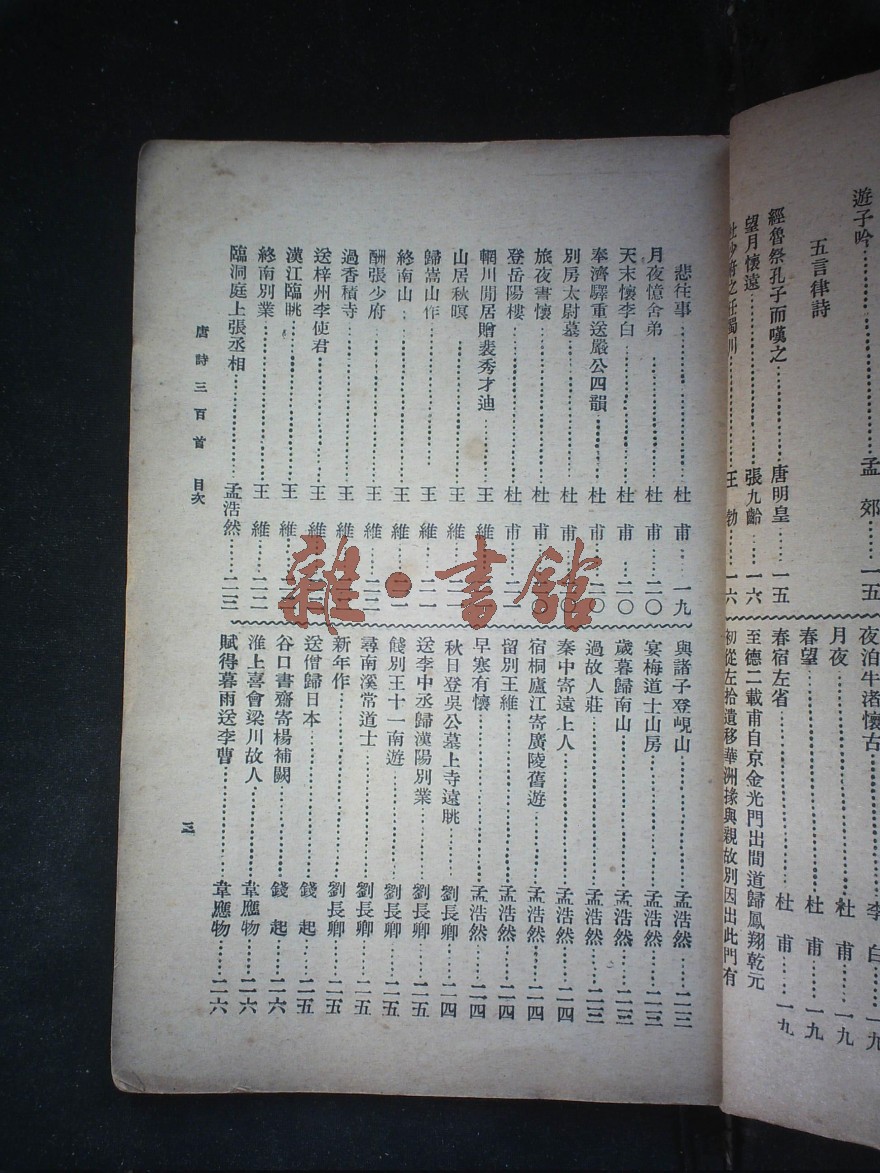 遊子吟 孟郊 一五
五言律詩
經魯祭孔子而嘆之 唐明皇 一五
望月懷遠 張九齡 一六
杜少府之任蜀川 王勃 一六
夜泊牛渚懷古 李白 一九
月夜 杜甫 一九
春望 杜甫 一九
春宿左省 杜甫 一九
至德二載甫自京金光門出間道歸鳳翔乾元
初從左拾遺移華洲掾與親故別因出此門有
悲往事 杜甫 一九
月夜憶舍弟 杜甫 二〇
天末懷李白 杜甫 二〇
奉濟驛重送嚴公四韻 杜甫 二〇
別房太尉墓 杜甫 二〇
旅夜書懷 杜甫
登岳陽樓 杜甫
輞川閒居贈裴秀才迪 王維
山居秋暝 王維
歸嵩山作 王維 二一
終南山 王維
酬張少府 王維 二二
過香積寺 王維
送梓州李使君 王維
漢江臨眺 王維
終南別業 王維 二二
臨洞庭上張丞相 孟浩然 二三
與諸子登峴山 孟浩然 二三
宴梅道士山房 孟浩然 二三
歲暮歸南山 孟浩然 二三
過故人莊 孟浩然 二三
秦中寄遠上人 孟浩然 二四
宿桐廬江寄廣陵舊遊 孟浩然 二四
留別王維 孟浩然 二四
早寒有懷 孟浩然 二四
秋日登吳公墓上寺遠眺 劉長卿 二四
送李中丞歸漢陽別業 劉長卿 二五
餞別王十一南遊 劉長卿 二五
尋南溪常道士 劉長卿 二五
新年作 劉長卿 二五
送僧歸日本 錢起 二五
谷口書齋寄楊補闕 錢起 二六
淮上喜會梁川故人 韋應物 二六
賦得暮雨送李曹 韋應物 二六
唐詩三百首 目次
三
雜·書館